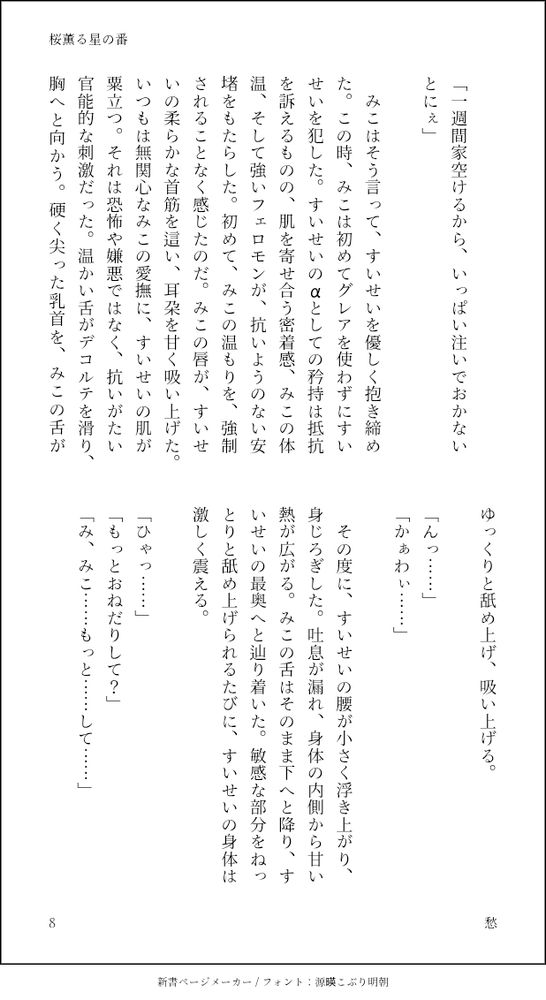 桜薫る星の番
「一週間家空けるから、いっぱい注いでおかない
とにぇ」
みこはそう言って、すいせいを優しく抱き締め
た。この時、みこは初めてグレアを使わずにすい
せいを犯した。すいせいのαとしての矜持は抵抗
を訴えるものの、肌を寄せ合う密着感、みこの体
温、そして強いフェロモンが、抗いようのない安
堵をもたらした。初めて、みこの温もりを、強制
されることなく感じたのだ。みこの唇が、すいせ
いの柔らかな首筋を這い、耳朶を甘く吸い上げた。
いつもは無関心なみこの愛撫に、すいせいの肌が
粟立つ。それは恐怖や嫌悪ではなく、抗いがたい
官能的な刺激だった。温かい舌がデコルテを滑り、
胸へと向かう。硬く尖った乳首を、みこの舌が
ゆっくりと舐め上げ、吸い上げる。
「んっ……」
「かぁわぃ……」
その度に、すいせいの腰が小さく浮き上がり、
身じろぎした。吐息が漏れ、身体の内側から甘い
熱が広がる。みこの舌はそのまま下へと降り、す
いせいの最奥へと辿り着いた。敏感な部分をねっ
とりと舐め上げられるたびに、すいせいの身体は
激しく震える。
「ひゃっ……」
「もっとおねだりして？」
「み、みこ……もっと……して……」
愁
8
新書ページメーカー / フォント：源暎こぶり明朝